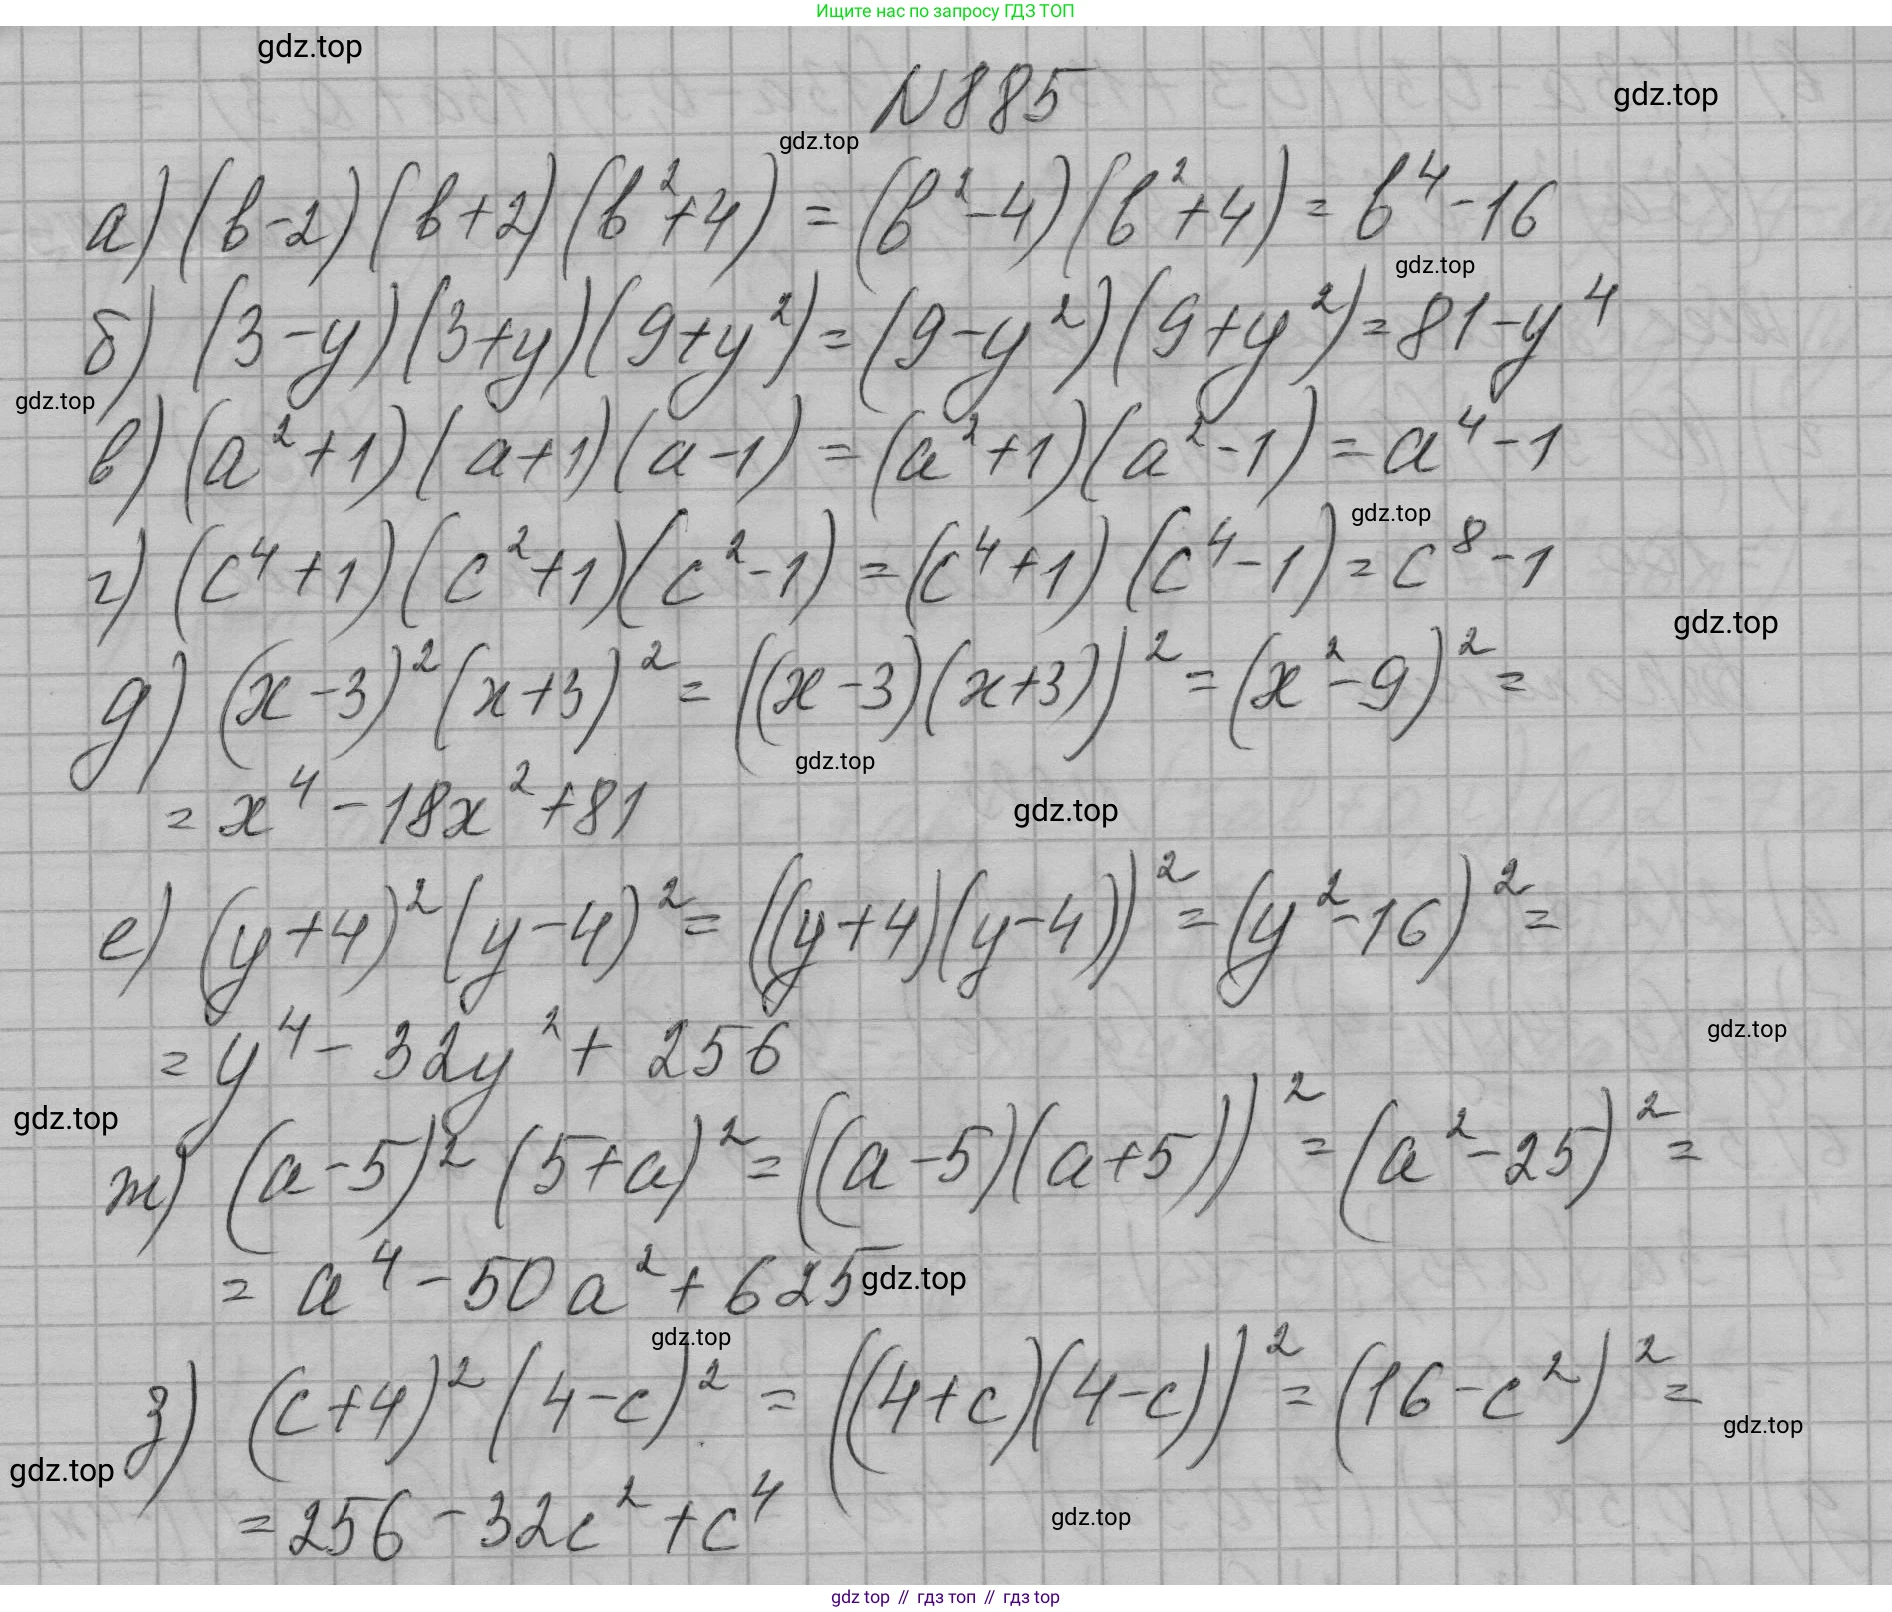 Ищите нас по запросу ГДЗ ТОП
gdz.top
N885
gdz.top
gdz.top
а) (b-2)(b+2)(b²+4) = (b²-4)(b²+4) = b⁴-16
gdz.top
б) (3-y)(3+y)(9+y²) = (9-y²)(9+y²) = 81-y⁴
gdz.top
в) (a²+1)(a+1)(a-1) = (a²+1)(a²-1) = a⁴-1
gdz.top
г) (c⁴+1)(c²+1)(c²-1) = (c⁴+1)(c⁴-1) = c⁸-1
gdz.top
д) (x-3)²(x+3)² = ((x-3)(x+3))² = (x²-9)² =
gdz.top
= x⁴-18x²+81
gdz.top
е) (y+4)²(y-4)² = ((y+4)(y-4))² = (y²-16)² =
= y⁴-32y²+256
gdz.top
gdz.top
ж) (a-5)²(5+a)² = ((a-5)(a+5))² = (a²-25)² =
= a⁴-50a²+625
gdz.top
gdz.top
з) (c+4)²(4-c)² = ((4+c)(4-c))² = (16-c²)² =
gdz.top
gdz.top
= 256-32c²+c⁴
gdz.top
gdz top // гдз топ // гдз top